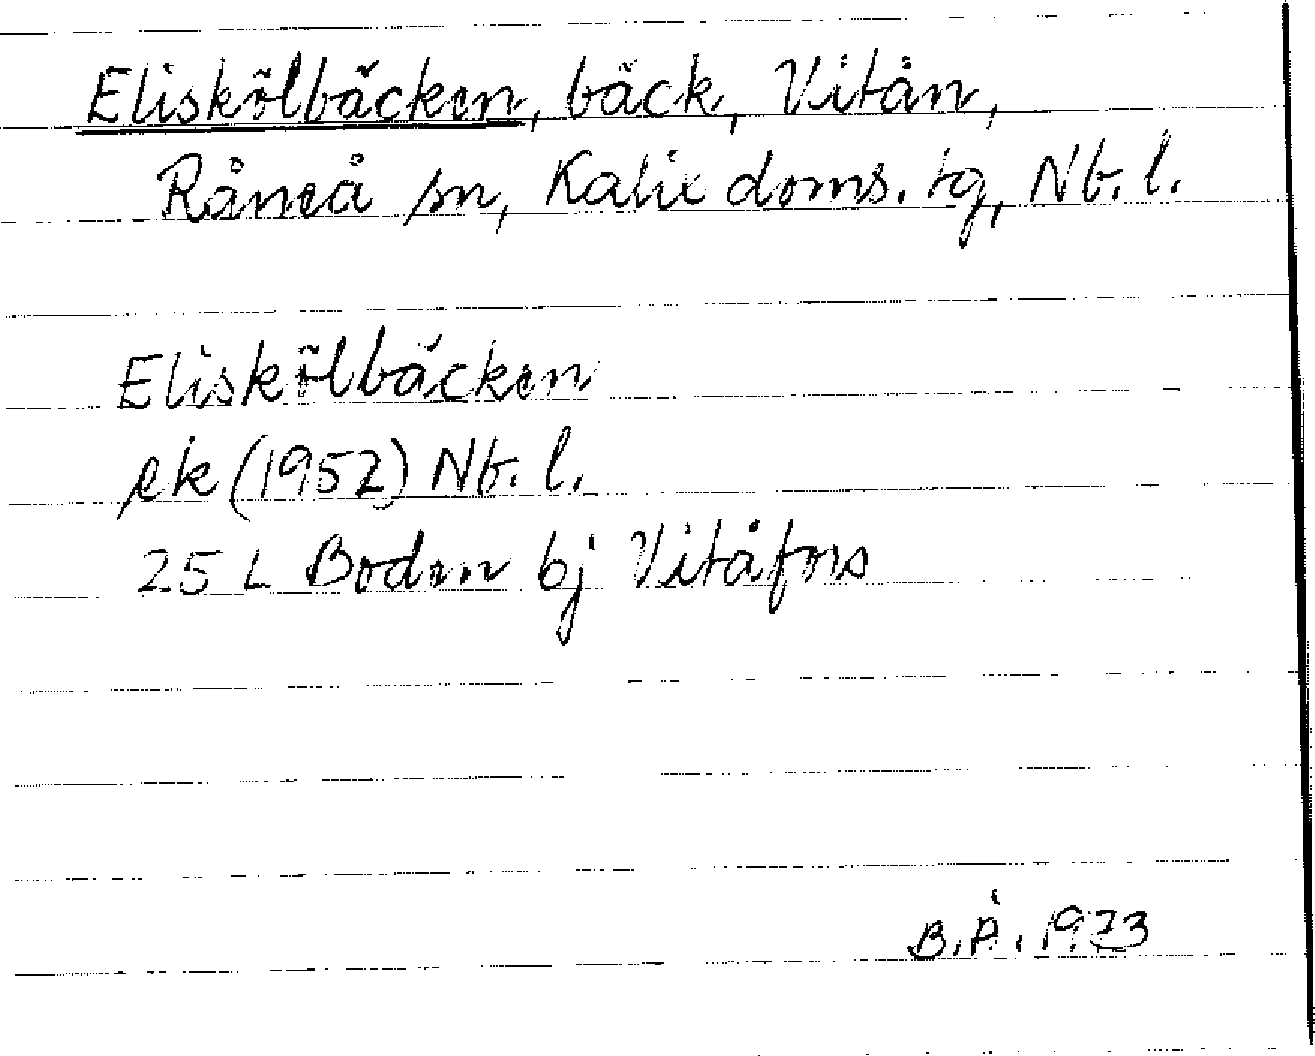 Eliskölbäcken, bäck, Vitån,
Råneå sn, Kalix doms. tg, Nb. l.
Eliskölbäcken
ek (1952) Nb. l.
25 L Boden bj Vitåfors
B.Å. 1973